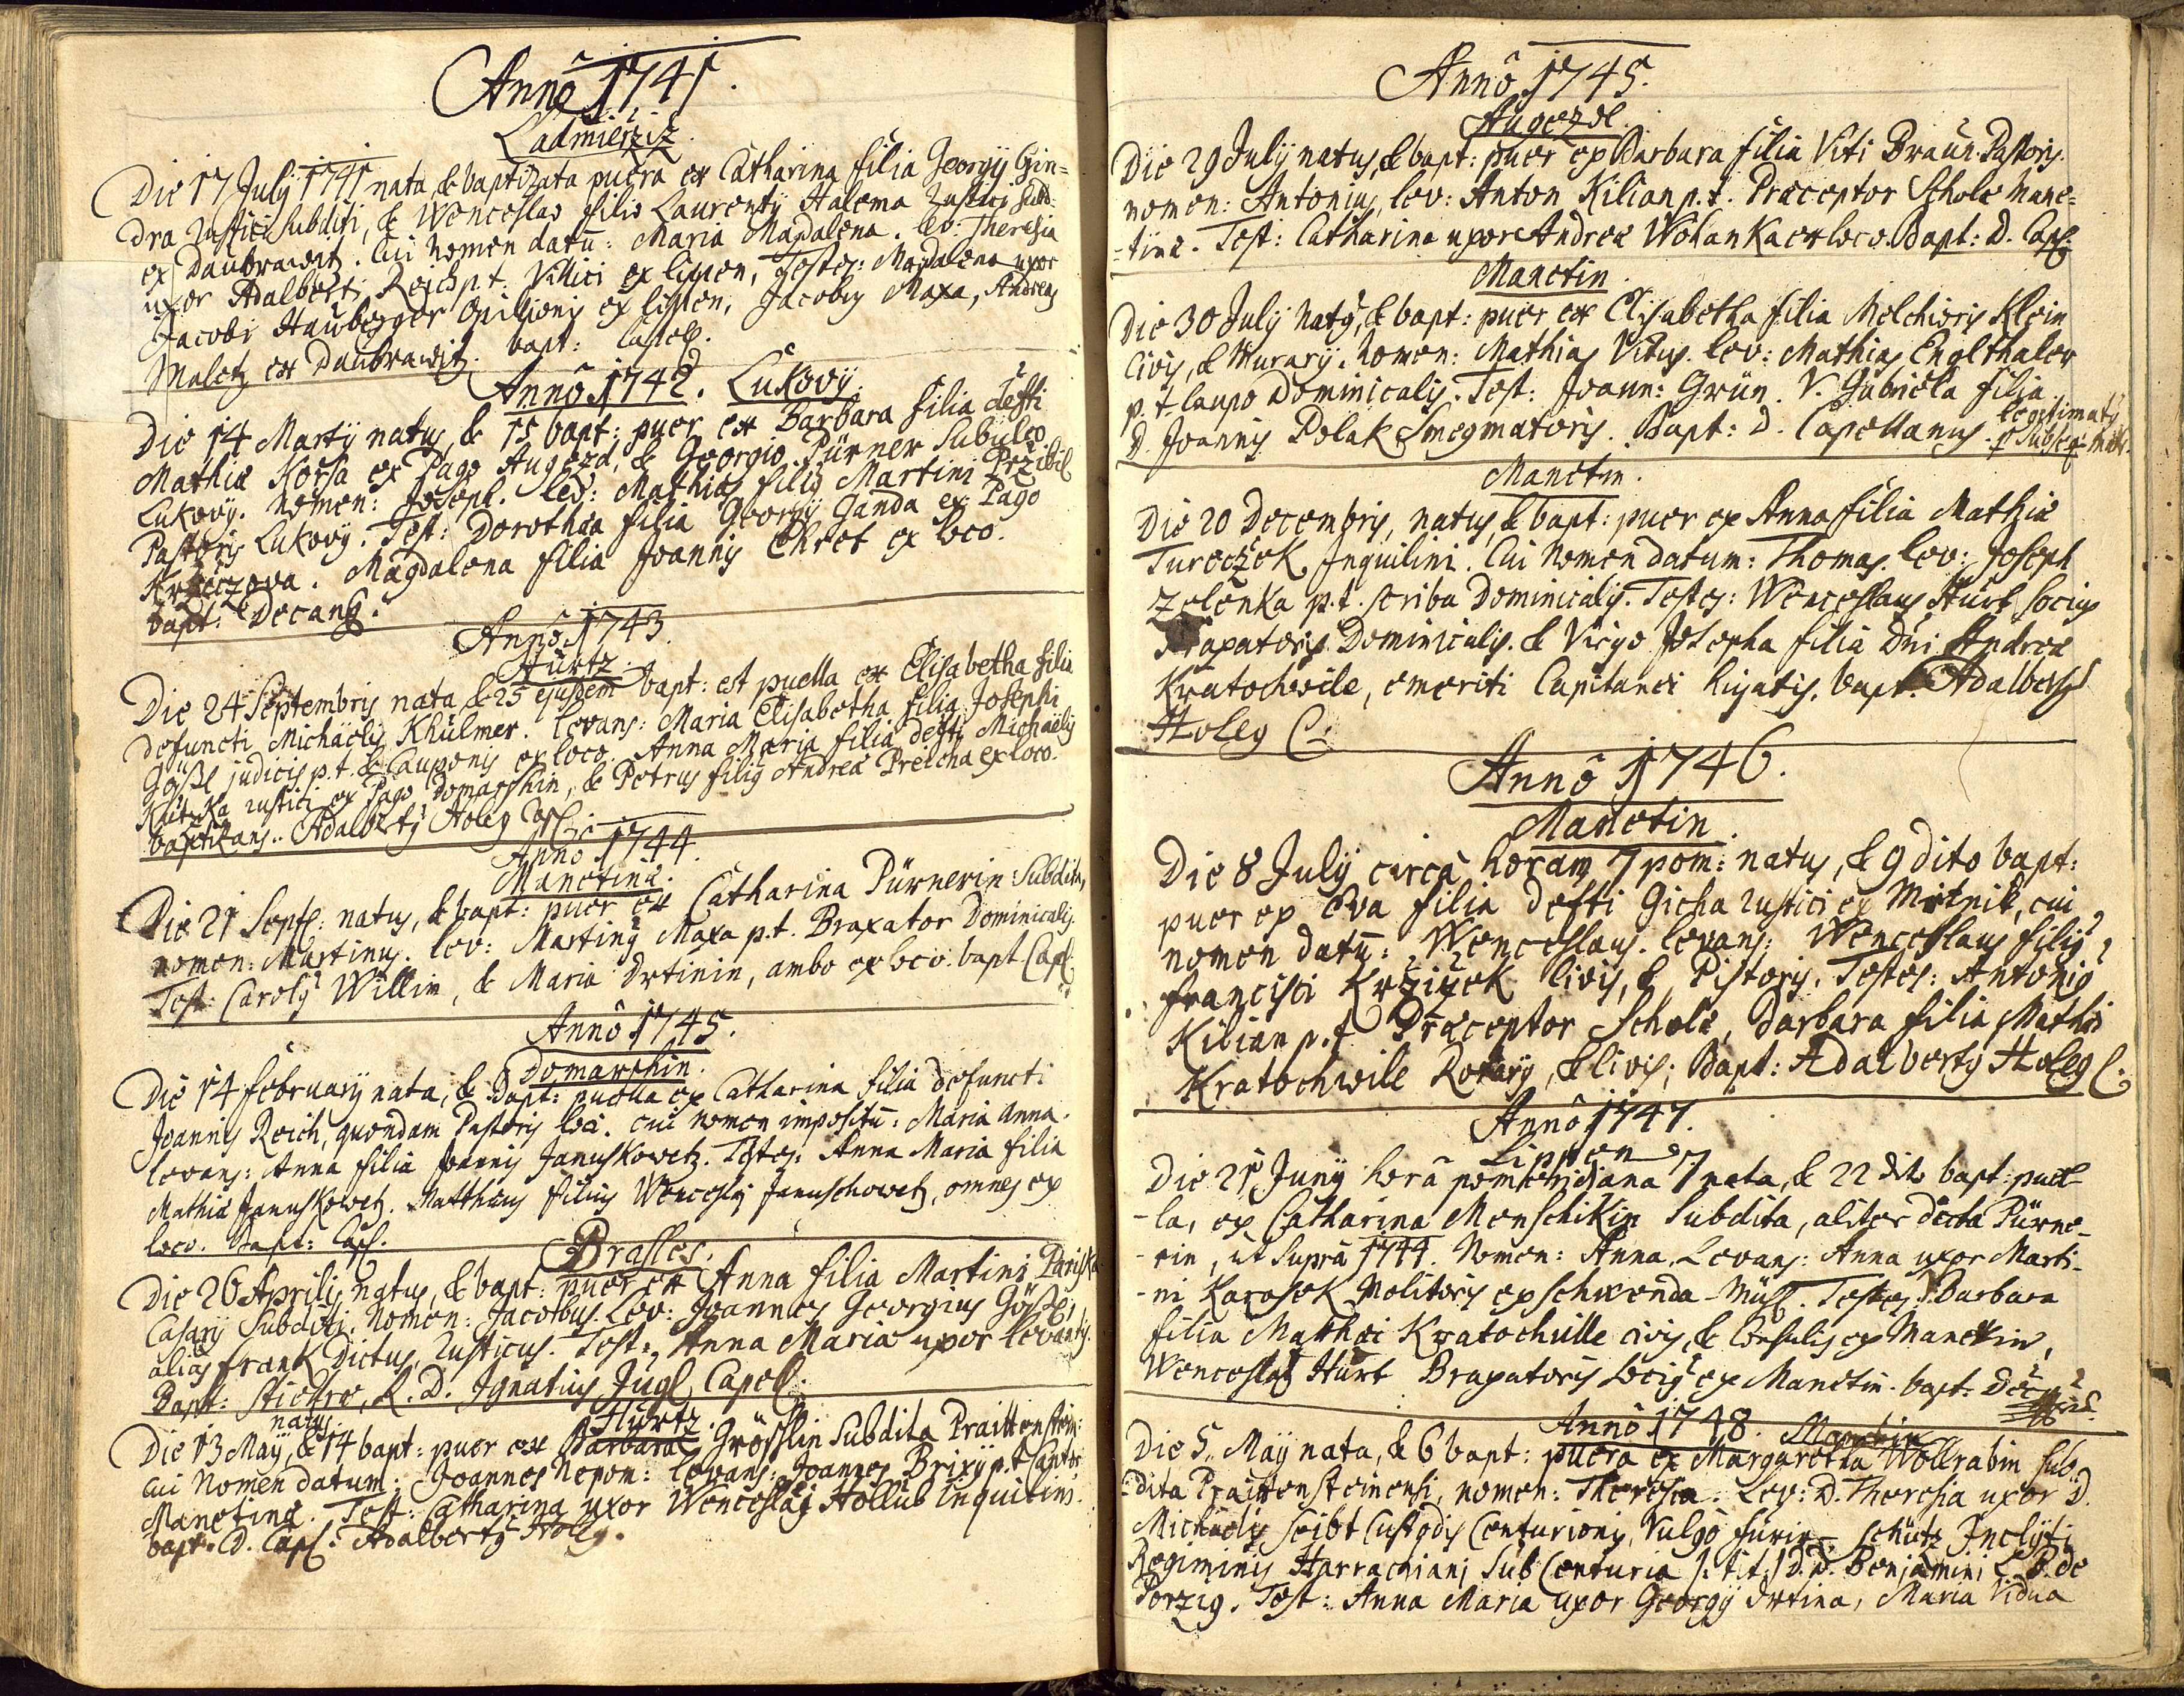 Annô 1741.
Ladmierziz.
Die 17 July 1741 nata, & baptizata puera ex Catharina filia Georgÿ Gin=
dra Rustici Subditi, & Wenceslao filio Laurentÿ Halema Rustici Subd:
ex Daubrawitz. Cui Nomen datū: Maria Magdalena. lev: Theresia
uxor Adalberti Reich p.t. Villici ex Lipen, Testes: Magdalena uxor
Jacobi Hauberger Opilionis ex Lippen, Jacobus Maxa, Andreas
Maletz ex Daubrawitz. bapt: Capell.
Annô 1742. Lukovÿ.
Die 14 Martÿ natus, & 15 bapt: puer ex Barbara filia defti
Mathiæ Korsa ex Pago Augezd, & Georgio Pürner Subulco
Lukovÿ. Nomen: Joseph. lev: Mathias filius Martini Przibil
Pastoris Lukovÿ. Test: Dorothæa filia Georgÿ Janda ex Pago
Magdalena filia Joannis Chret ex loco.
bapt: Decanus.
Annô 1743.
Hurtz.
Die 24 Septembris nata & 25 ejusdem bapt: est puella ex Elisabetha filia
defuncti Michäelis Khülmer. levans: Maria Elisabetha filia Josephi
Gößl judicis p.t. & Cauponis ex loco. Anna Maria filia defti Michäelis
Kutzka rustici ex Pago Domaschin, & Petrus filius Andreæ Preicha ex loco.
baptizans. Adalbertus Holey Capl.
Annô 1744.
Manetinæ.
Die 21 Sept: natus, & bapt: puer ex Catharina Pürnerin Subdita,
nomen: Martinus. lev: Martinus Maxa p.t. Braxator Dominicalis.
Test: Carolus Willim, & Maria Drtinin, ambo ex loco. bapt. Capl.
Annô 1745.
Domaschin.
Die 14 February nata, & Bapt: puella ex Catharina filia defuncti
Joannis Reich, quondam Pastoris loci. cui nomen impositū: Maria Anna.
levans: Anna filia Joannis Januskowetz. Testes: Anna Maria filia
Mathiæ Januskowetz. Matthæus filius Wenceslai Januschowetz, omnes ex
loco. Bapt: Capl.
Brasles.
Die 26 Aprilis natus, & bapt: puer ex Anna filia Martini Pariska
Casarÿ Subditi. Nomen: Jacobus. Lev: Joannes Georgius Gößl,
alias Frank Dictus, Rusticus. Test: Anna Maria uxor levantis.
Bapt: Stickre, R.D. Ignatius Jugl Capell.
Hurtz.
natus
Die 13 Maÿ, & 14 bapt: puer ex Barbara Grösslin Subdita Praittenstein:
cui Nomen datum: Joannes Nepom: levans: Joannes Brixÿ p.t. Cantor
Manetinæ. Test: Catharina uxor Wenceslai Hollub Inquilini.
bapt: D. Capl: Adalbertus Holey.
Annô 1745.
Augezdl.
Die 29 July natus, & bapt: puer ex Barbara filia Viti Braun Pastoris.
nomen: Antonius, lev: Anton Kilian p.t. Præceptor Scholæ Mane=
=tinæ. Test: Catharina uxor Andreæ Wohanka ex loco. Bapt: D. Capl.
Manetin.
Die 30 July natus, & bapt: puer ex Elisabetha filia Melchioris Klein
Civis, & Murarÿ. Nomen: Mathias Vitus. lev: Mathias Englthaler
p.t. Caupo Dominicalis. Test: Joann: Grün. V. Gabriela filia
D. Joannis Polak Smegmatoris. Bapt: D. Capellanus. Legitimatus
p Subseq: Mat:
Manetin.
Die 20 Decembris, natus, & bapt: puer ex Anna filia Mathiæ
Tureczek Inquilini. Cui Nomen datum: Thomas. lev: Joseph
Zelenka p.t. scriba Dominicalis. Testes: Wenceslaus Hurt Socius
Braxatoris Dominicalis. & Virgo Josepha filia Dni Andreæ
Kratochwile, emeriti Capitanei hujatis, bapt. Adalbertus
Holey C:
Annô 1746.
Manetin.
Die 8 July circa horam 7 pom: natus, & 9 dito bapt:
puer ex Eva filia Defti Gicha Rustici ex Mitnik, cui
nomen datū: Wenceslaus. levans: Wenceslaus filius
Francisci Krziżek Civis, & Pistoris. Testes: Antonius
Kilian p.t. Præceptor Scholæ, Barbara filia Mathæi
Kratochwile Rotarÿ, & Civis; Bapt: Adalbertus Holey C.
Annô 1747.
Lippen
Die 21 Juny horâ pomeridiana 7 nata, & 22 dito bapt: puel-
-la, ex Catharina Menschikin Subdita, aliter dicta Pürne-
-rin, ut Supra 1744. Nomen: Anna. Levans: Anna uxor Marti-
-ni Karasek Molitoris ex Schwenda-Mühl. Testes: Barbara
filia Mathæi Kratochuille civis, & Consulis ex Manetin,
Wenceslaus Hurt Braxatoris Socius ex Manetin. bapt: Decanus
Annô 1748. Manetin
Die 5. Maÿ nata, & 6 bapt: puera ex Margaretha Wöllrabin sub=
=dita Praittensteinensi, nomen: Theresia. Lev: D. Theresia uxor D.
Michäelis Seibt Custodis Centurionis, vulgo Furier-Schütz Inclyti
Regiminis Harrachiani Sub Centuria /: tit: / D. D. Benjamini L. B. de
Porzig. Test: Anna Maria uxor Georgÿ Drtina, Maria Vidua